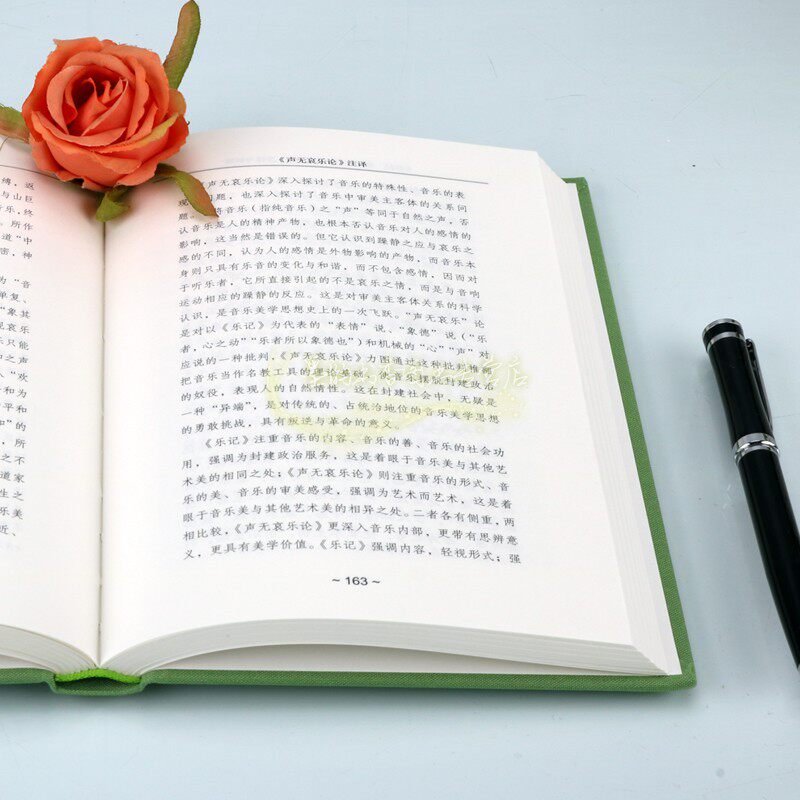 缚，返
与山巨
乐，终
所作
道“中
密，神
为“音
单复、
“象其
现哀乐
乐只能
和之声
在以
和为
平和
和”的
，所
之不
道家
生之
乐美
近、
《声无哀乐论》注译
《声无哀乐论》深入探讨了音乐的特殊性、音乐的表
问题，也深入探讨了音乐中审美主客体的关系问
题。将音乐（指纯音乐）之“声”等同于自然之声，否
认音乐是人的精神产物，也根本否认音乐对人的感情的
影响，这当然是错误的。但它认识到躁静之应与哀乐之
感的不同，认为人的感情是外物影响的产物，而音乐本
身则只具有乐音的变化与和谐，而不包含感情，因而对
于听乐者，它所直接引起的不是哀乐之情，而是与音响
运动相应的躁静的反应。这是对审美主客体关系的科学
认识，是音乐美学思想史上的一次飞跃。“声无哀乐”论
是对以《乐记》为代表的“表情”说、“象德”说（“乐
者，心之动”“乐者所以象德也”）和机械的“心”“声”对
应说的一种批判。《声无哀乐论》力图通过这种批判推翻
把音乐当作名教工具的理论基础，使音乐摆脱封建政治
的奴役，表现人的自然情性。这在封建社会中，无疑是
一种“异端”，是对传统的、占统治地位的音乐美学思想
的勇敢挑战，具有叛逆与革命的意义。
《乐记》注重音乐的内容、音乐的善、音乐的社会功
用，强调为封建政治服务，这是着眼于音乐美与其他艺
术美的相同之处；《声无哀乐论》则注重音乐的形式、音
乐的美、音乐的审美感受，强调为艺术而艺术，这是着
眼于音乐美与其他艺术美的相异之处。二者各有侧重，两
相比较，《声无哀乐论》更深入音乐内部，更带有思辨意
义，更具有美学价值。《乐记》强调内容，轻视形式；强
~ 163 ~